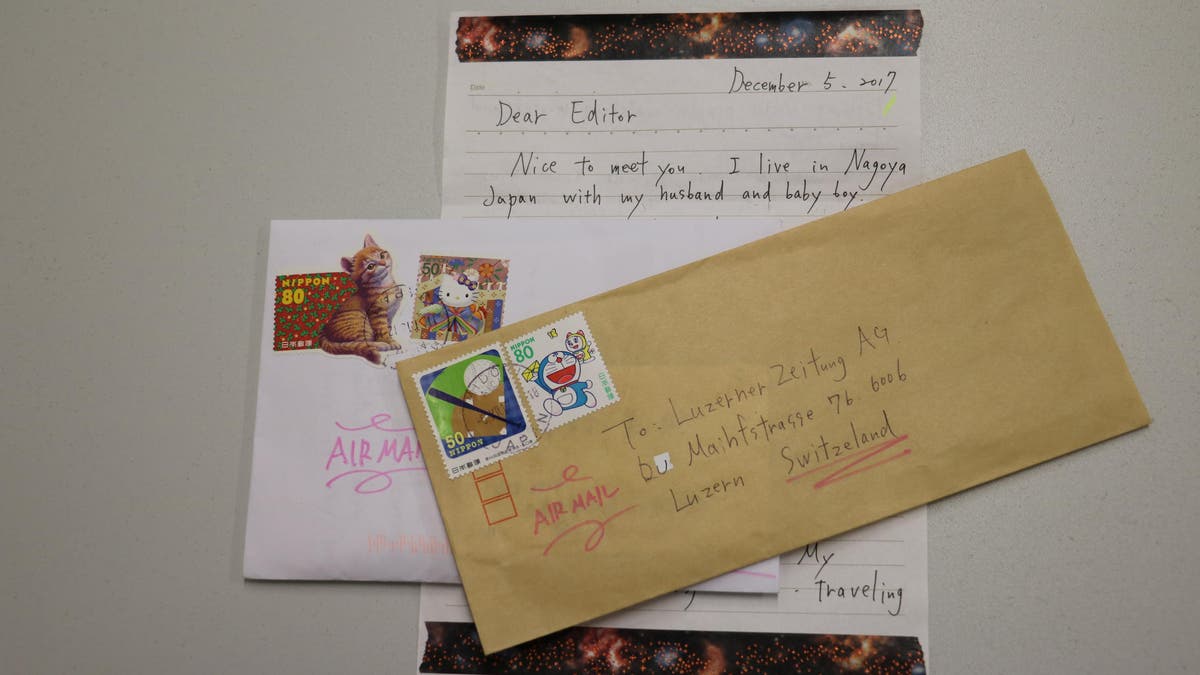 Date
December 5. 2017
Dear Editor
Nice to meet you. I live in Nagoya
Japan with my husband and baby boy.
NIPPON
80
日本郵便
50
AIR MAIL
50
NIPPON
日本郵便
NIPPON
80
日本郵便
AIR MAIL
To: Luzerner Zeitung AG
bu Maihfstrasse 76 6006
Luzern Switzeland
My
traveling